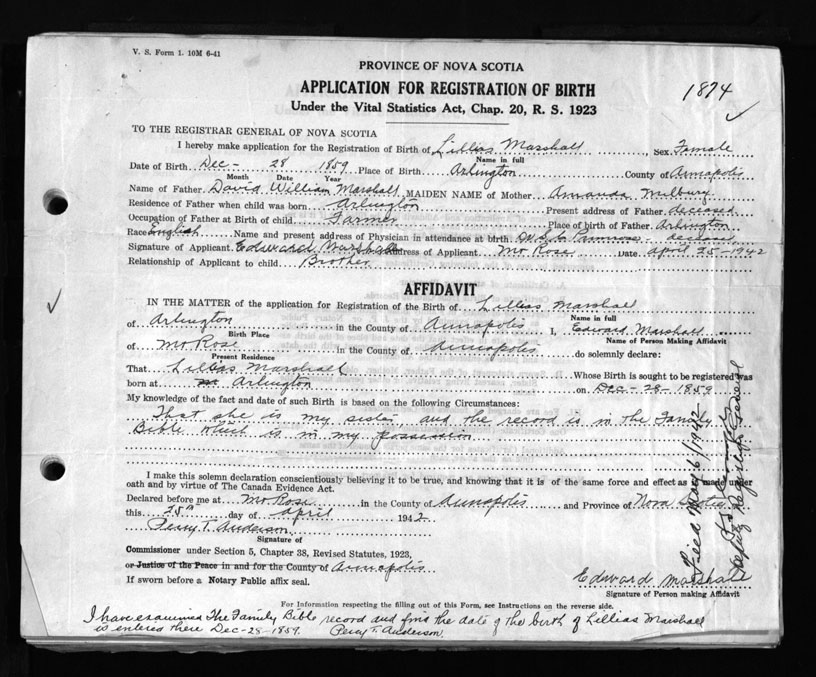 V. S. Form 1. 10M 6-41
PROVINCE OF NOVA SCOTIA
APPLICATION FOR REGISTRATION OF BIRTH
1874
Under the Vital Statistics Act, Chap. 20, R. S. 1923
TO THE REGISTRAR GENERAL OF NOVA SCOTIA
I hereby make application for the Registration of Birth of Lillias Marshall Sex Female
Name in full
Date of Birth Dec- 28 1859 Place of Birth Arlington County of Annapolis
Month Date Year
Name of Father David William Marshall MAIDEN NAME of Mother Amanda Milbury
Residence of Father when child was born Arlington Present address of Father deceased
Occupation of Father at Birth of child Farmer Place of birth of Father Arlington
Race English Name and present address of Physician in attendance at birth Dr. Primrose deceased
Signature of Applicant Edward Marshall Address of Applicant Mt Rose Date April 25-1942
Relationship of Applicant to child Brother
AFFIDAVIT
IN THE MATTER of the application for Registration of the Birth of Lillias Marshall
Name in full
of Arlington in the County of Annapolis I, Edward Marshall
Birth Place Name of Person Making Affidavit
of Mt Rose in the County of Annapolis do solemnly declare:
Present Residence
That Lillias Marshall Whose Birth is sought to be registered was
born at Arlington on Dec-28-1859
My knowledge of the fact and date of such Birth is based on the following Circumstances:
That she is my sister, and the record is in the Family
Bible which is in my possession
I make this solemn declaration conscientiously believing it to be true, and knowing that it is of the same force and effect as if made under
oath and by virtue of The Canada Evidence Act.
Declared before me at Mt Rose in the County of Annapolis and Province of Nova Scotia
this 25th day of April 1942
Percy T. Anderson
Signature of
Commissioner under Section 5, Chapter 38, Revised Statutes, 1923,
or Justice of the Peace in and for the County of Annapolis
If sworn before a Notary Public affix seal.
Edward Marshall
Signature of Person making Affidavit
Filed May 6/1942
Deputy Registrar General
For Information respecting the filling out of this Form, see Instructions on the reverse side.
I have examined The Family Bible record and find the date of the birth of Lillias Marshall
is entered there Dec-28-1859. Percy T. Anderson.